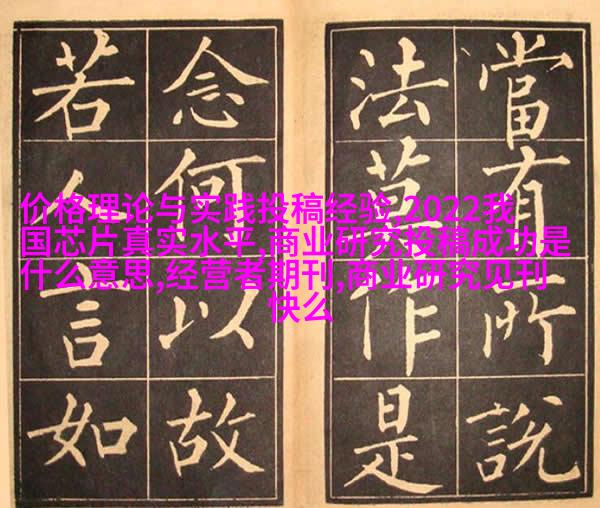 當有所說
法莫作是
念何以故
若人言如
价格理论与实践投稿经验,2022我
国芯片真实水平,商业研究投稿成功是
什么意思,经营者期刊,商业研究见刊
快么